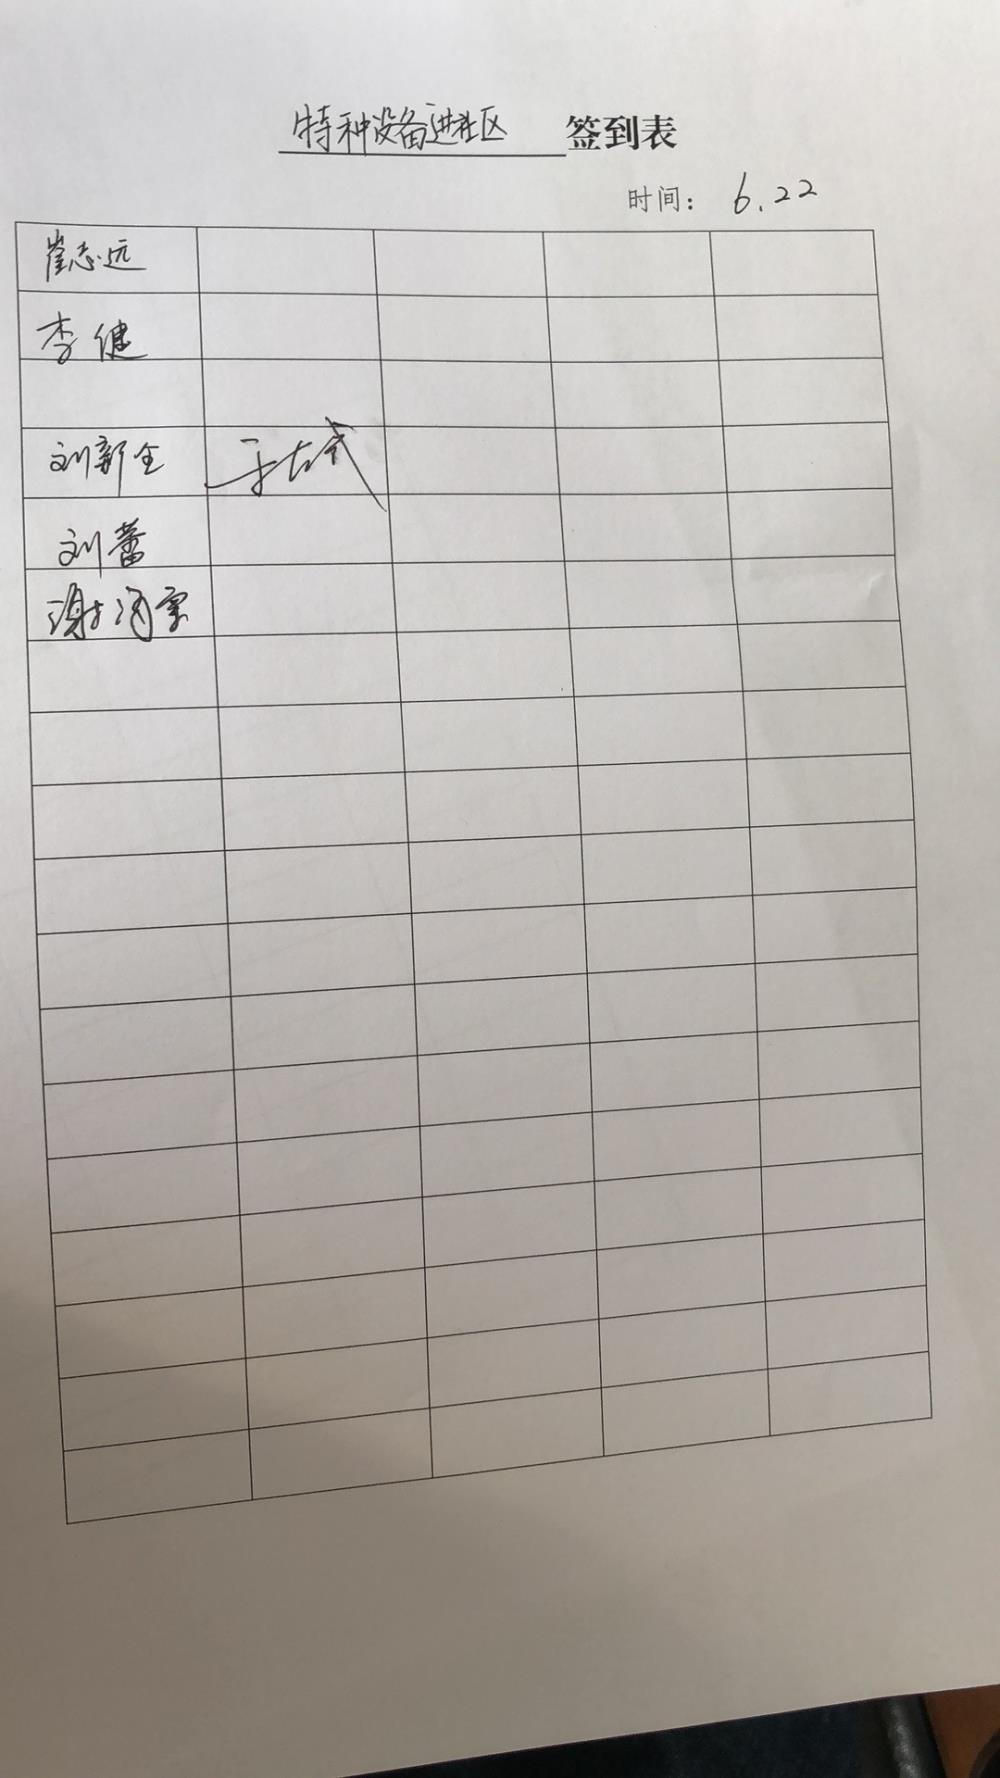 特种设备进社区 签到表
时间： 6.22
崔志远
李健
刘新全
刘蕾
谢